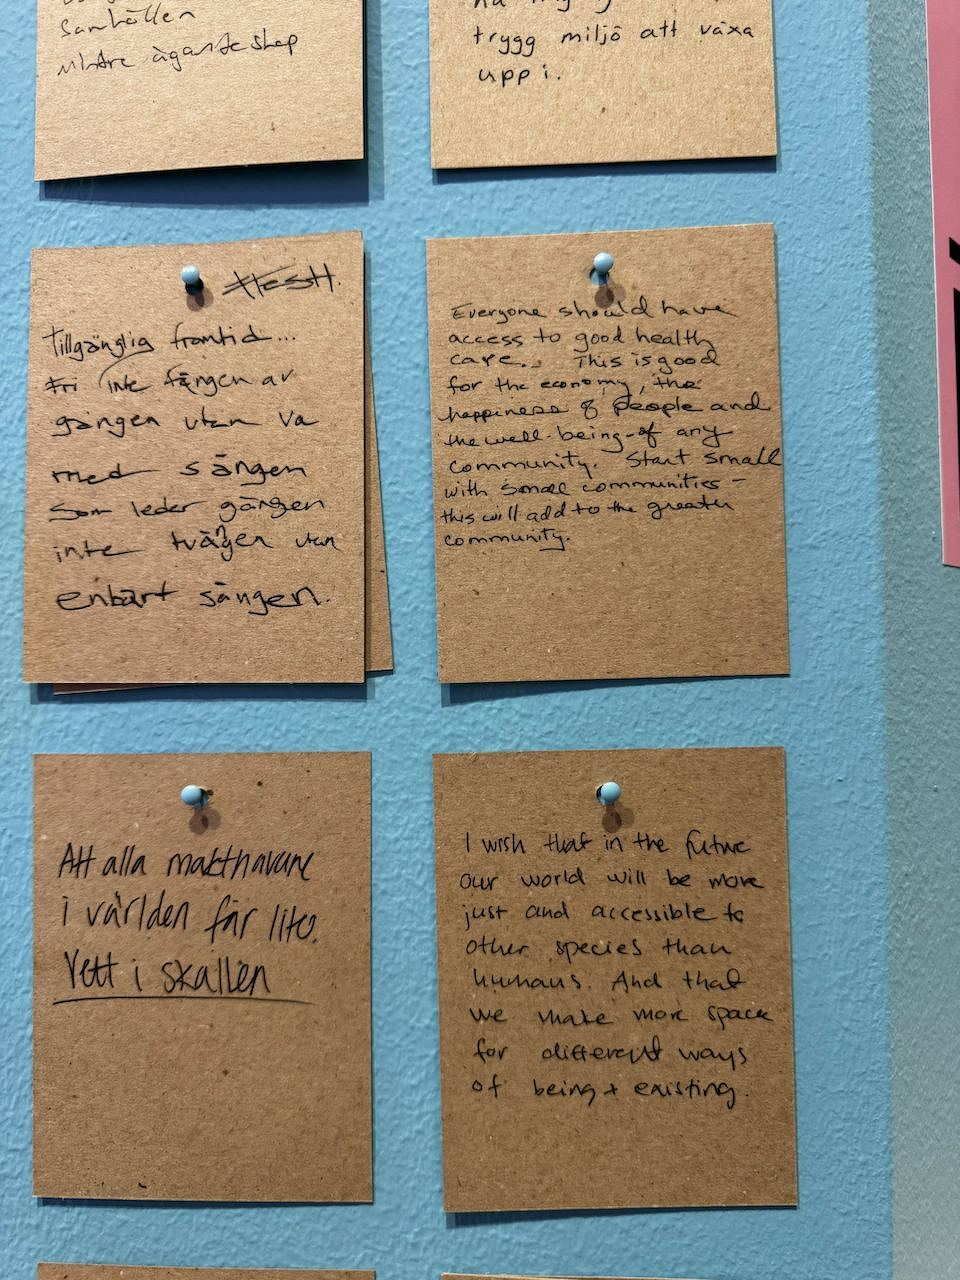 Samhällen
mindre ägandeskap
trygg miljö att växa
upp i.
Tillgänglig framtid...
Fri inte fången av
gången utan va
med sången
som leder gången
inte tvången utan
enbart sången.
Everyone should have
access to good health
care. This is good
for the economy, the
happiness of people and
the well-being of any
community. Start small
with small communities –
this will add to the greater
community.
Att alla makthavare
i världen får lite.
Vett i skallen
I wish that in the future
our world will be more
just and accessible to
other species than
humans. And that
we make more space
for different ways
of being + existing.